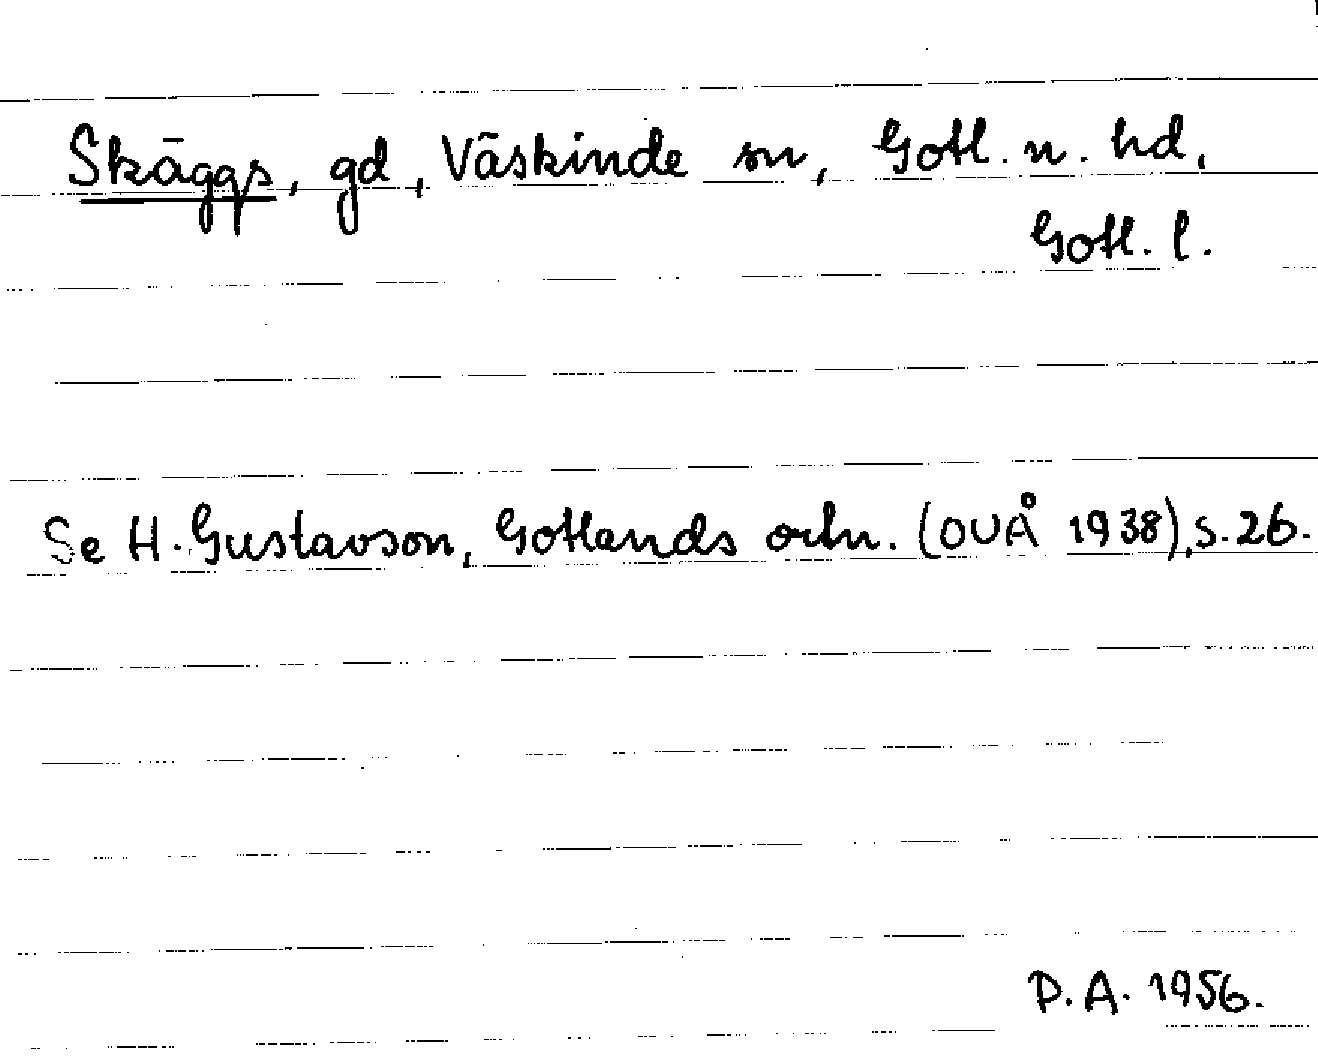 Skäggs, gd, Väskinde sn, Gotl. n. hd,
Gotl. l.
Se H. Gustavson, Gotlands ortn. (OUÅ 1938), s. 26.
P.A. 1956.